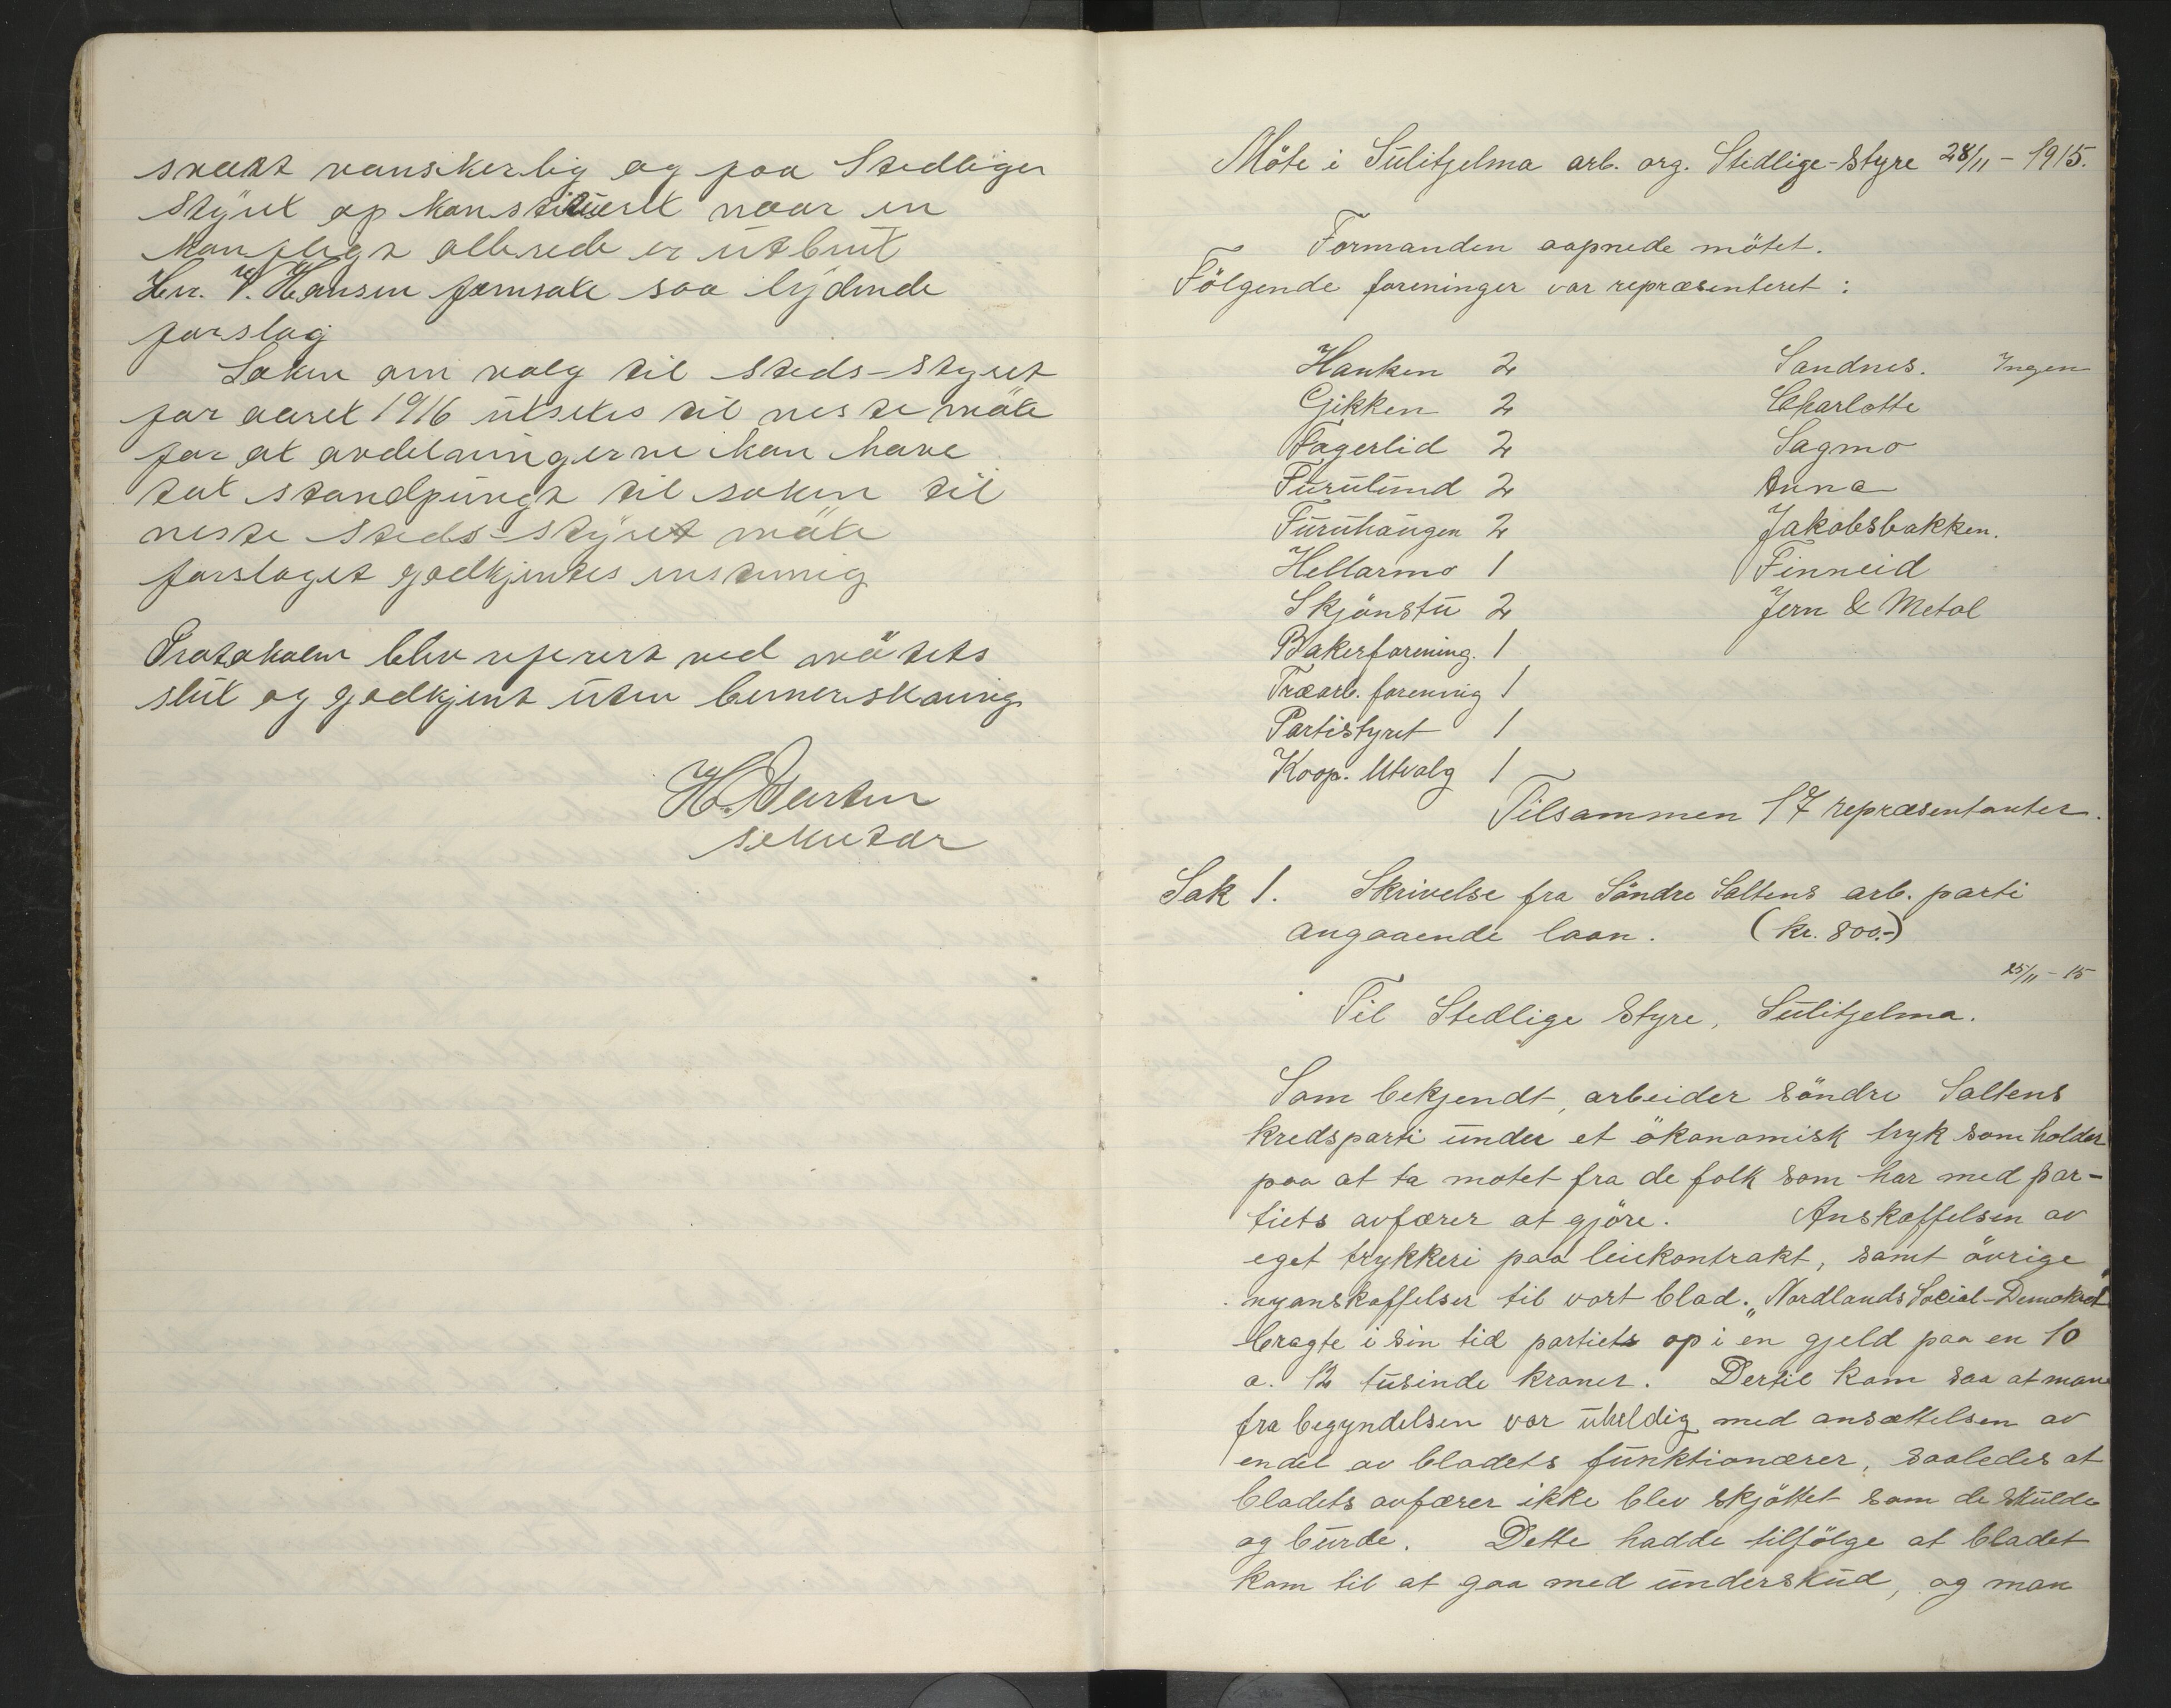 svært vanskerlig og faa Stedliger
Styret op konstituert naar en
konfligt allerede er utbrut
Hr. V. Hansen fremsate saa lydende
forslag
Saken om valg til Steds-Styret
for aaret 1916 utsetes til neste möte
for at avdelningerne kan have
tat standpungt til saken til
neste Steds-Styret möte
forslaget godkjentes enstemig
Protokolen blev referert ved mötets
slut og godkjent uten bemerskning
sekretær
Möte i Sulitjelma arb. org. Stedlige-Styre 28/11 - 1915.
Formanden aapnede mötet.
Fölgende foreninger var repræsenteret :
Hanken 2 Sandnes. Ingen
Gjikken 2 Charlotte
Fagerlid 2 Sagmo
Furulund 2 Anna
Furuhaugen 2 Jakobsbakken.
Hellarmo 1 Finneid
Skjönstu 2 Jern & Metal
Bakerforening. 1
Træarb. forening 1
Partistyret 1
Koop. Utvalg 1
Tilsammen 17 repræsentanter.
Sak 1. Skrivelse fra Söndre Saltens arb. parti
angaaende laan. (kr. 800.-)
25/11 - 15
Til Stedlige Styre, Sulitjelma.
Som bekjendt, arbeider Söndre Saltens
kredsparti under et ökonomisk tryk som holder
paa at ta motet fra de folk som har med par-
tiets avfærer at gjöre. Anskaffelsen av
eget trykkeri paa leiekontrakt, samt övrige
nyanskaffelser til vort blad. „Nordlands Social-Demokrat"
bragte i sin tid partiets op i en gjeld paa en 10
a. 12 tusinde kroner. Dertil kom saa at man
fra begyndelsen var uheldig med ansættelsen av
endel av bladets funktionærer, saaledes at
bladets avfærer ikke blev skjöttet som de skulde
og burde. Dette hadde tilfölge at bladet
kom til at gaa med underskud, og man